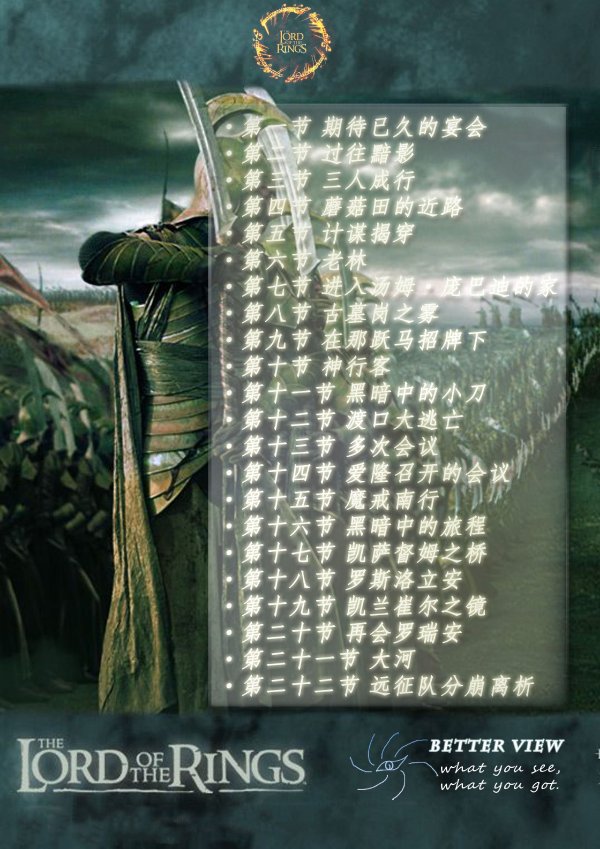 THE
LORD
OF THE
RINGS
· 第一节 期待已久的宴会
· 第二节 过往黯影
· 第三节 三人成行
· 第四节 蘑菇田的近路
· 第五节 计谋揭穿
· 第六节 老林
· 第七节 进入汤姆·庞巴迪的家
· 第八节 古墓岗之雾
· 第九节 在那跃马招牌下
· 第十节 神行客
· 第十一节 黑暗中的小刀
· 第十二节 渡口大逃亡
· 第十三节 多次会议
· 第十四节 爱隆召开的会议
· 第十五节 魔戒南行
· 第十六节 黑暗中的旅程
· 第十七节 凯萨督姆之桥
· 第十八节 罗斯洛立安
· 第十九节 凯兰崔尔之镜
· 第二十节 再会罗瑞安
· 第二十一节 大河
· 第二十二节 远征队分崩离析
THE
LORD OF THE RINGS
BETTER VIEW
what you see,
what you got.